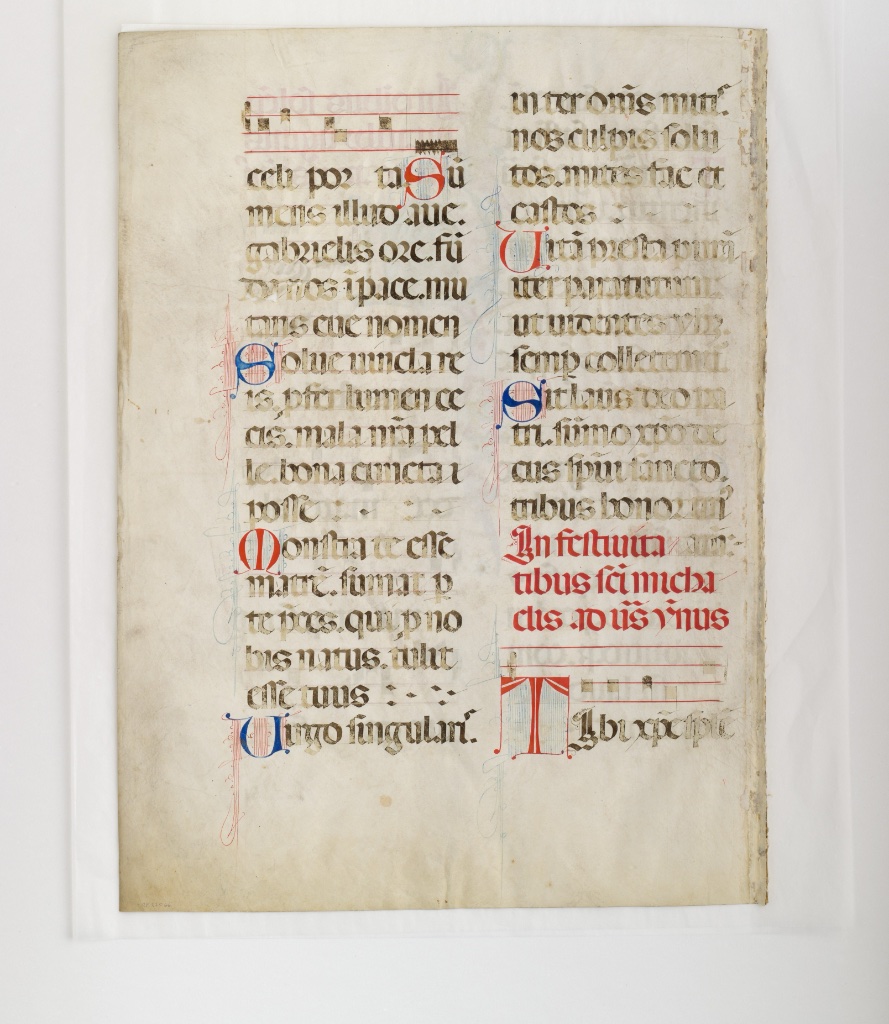 celi por ta Sũ
mens illud aue.
gabrielis ore. fũ
da nos ĩ pace. mu
tans eue nomen
Solue uincla re
is. pfer lumen ce
cis. mala nr̃a pel
le. bona cuncta
posce
Monstra te esse
matrẽ. sumat p
te p̃ces. qui p no
bis natus. tulit
esse tuus
Uirgo singularis.
inter omĩs mitis.
nos culpis solu
tos. mites fac et
castos
Uitã presta purã.
iter para tutum.
ut uidentes
semp colletemur
Sit laus deo pa
tri. sũmo xpo de
cus spũi sancto.
tribus honor
In festiuita
tibus sc̃i micha
elis ad uñs ẏnus
Tibi xp̃e sple